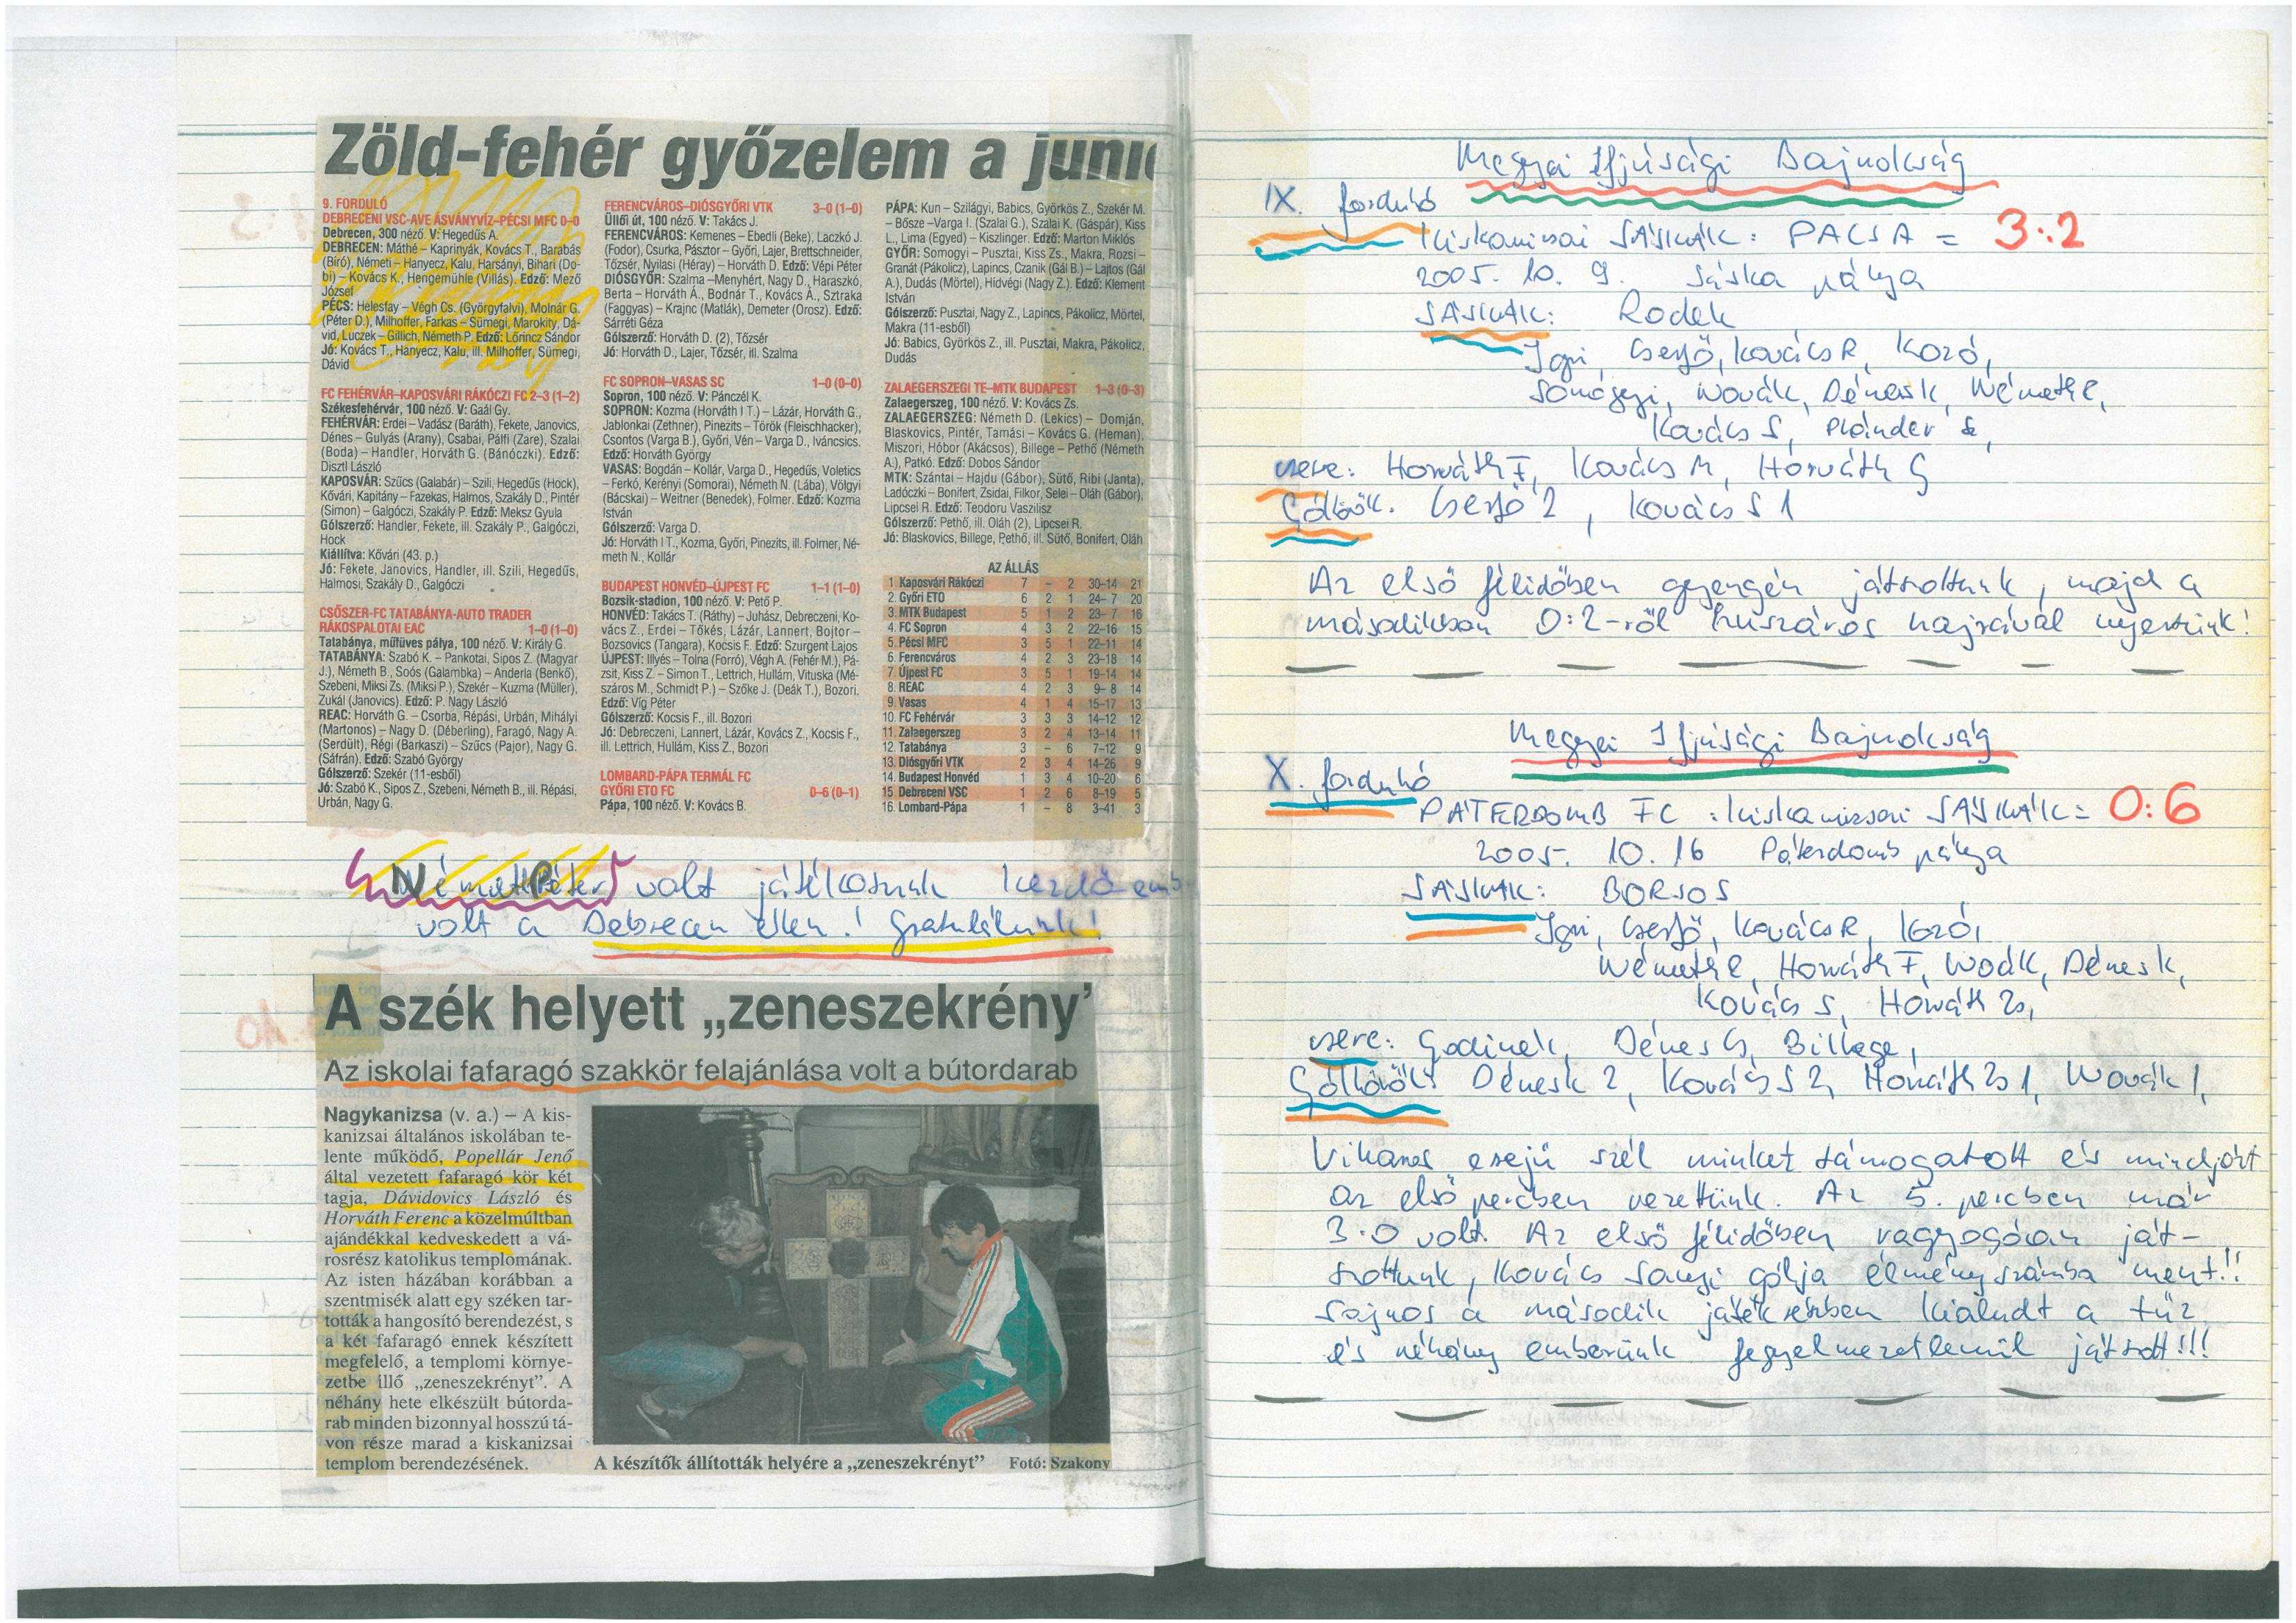 Zöld-fehér győzelem a juni
9. FORDULÓ
DEBRECENI VSC-AVE ÁSVÁNYVÍZ–PÉCSI MFC 0–0
Debrecen, 300 néző. V: Hegedűs A.
DEBRECEN: Máthé – Kaprinyák, Kovács T., Barabás
(Bíró), Németi – Hanyecz, Kalu, Harsányi, Bihari (Do-
bi) – Kovács K., Hengemühle (Villás). Edző: Mező
József
PÉCS: Helesfay – Végh Cs. (Györgyfalvi), Molnár G.
(Péter D.), Milhoffer, Farkas – Sümegi, Marokity, Dá-
vid, Luczek – Gillich, Németh P. Edző: Lőrincz Sándor
Jó: Kovács T., Hanyecz, Kalu, ill. Milhoffer, Sümegi,
Dávid
FC FEHÉRVÁR–KAPOSVÁRI RÁKÓCZI FC 2–3 (1–2)
Székesfehérvár, 100 néző. V: Gaál Gy.
FEHÉRVÁR: Erdei – Vadász (Baráth), Fekete, Janovics,
Dénes – Gulyás (Arany), Csabai, Pálfi (Zare), Szalai
(Boda) – Handler, Horváth G. (Bánóczki). Edző:
Disztl László
KAPOSVÁR: Szűcs (Galabár) – Szili, Hegedűs (Hock),
Kővári, Kapitány – Fazekas, Halmos, Szakály D., Pintér
(Simon) – Galgóczi, Szakály P. Edző: Meksz Gyula
Gólszerző: Handler, Fekete, ill. Szakály P., Galgóczi,
Hock
Kiállítva: Kővári (43. p.)
Jó: Fekete, Janovics, Handler, ill. Szili, Hegedűs,
Halmosi, Szakály D., Galgóczi
CSŐSZER-FC TATABÁNYA-AUTO TRADER
RÁKOSPALOTAI EAC 1–0 (1–0)
Tatabánya, műfüves pálya, 100 néző. V: Király G.
TATABÁNYA: Szabó K. – Pankotai, Sipos Z. (Magyar
J.), Németh B., Soós (Galambka) – Anderla (Benkő),
Szebeni, Miksi Zs. (Miksi P.), Szekér – Kuzma (Müller),
Zukál (Janovics). Edző: P. Nagy László
REAC: Horváth G. – Csorba, Répási, Urbán, Mihályi
(Martonos) – Nagy D. (Déberling), Faragó, Nagy A.
(Serdült), Régi (Barkaszi) – Szűcs (Pajor), Nagy G.
(Sáfrán). Edző: Szabó György
Gólszerző: Szekér (11-esből)
Jó: Szabó K., Sipos Z., Szebeni, Németh B., ill. Répási,
Urbán, Nagy G.
FERENCVÁROS–DIÓSGYŐRI VTK 3–0 (1–0)
Üllői út, 100 néző. V: Takács J.
FERENCVÁROS: Kemenes – Ebedli (Beke), Laczkó J.
(Fodor), Csurka, Pásztor – Győri, Lajer, Brettschneider,
Tőzsér, Nyilasi (Héray) – Horváth D. Edző: Vépi Péter
DIÓSGYŐR: Szalma –Menyhért, Nagy D., Haraszkó,
Berta – Horváth Á., Bodnár T., Kovács Á., Sztraka
(Faggyas) – Krajnc (Matlák), Demeter (Orosz). Edző:
Sárréti Géza
Gólszerző: Horváth D. (2), Tőzsér
Jó: Horváth D., Lajer, Tőzsér, ill. Szalma
FC SOPRON–VASAS SC 1–0 (0–0)
Sopron, 100 néző. V: Pánczél K.
SOPRON: Kozma (Horváth I T.) – Lázár, Horváth G.,
Jablonkai (Zethner), Pinezits – Török (Fleischhacker),
Csontos (Varga B.), Győri, Vén – Varga D., Iváncsics.
Edző: Horváth György
VASAS: Bogdán – Kollár, Varga D., Hegedűs, Voletics
– Ferkó, Kerényi (Somorai), Németh N. (Lába), Völgyi
(Bácskai) – Weitner (Benedek), Folmer. Edző: Kozma
István
Gólszerző: Varga D.
Jó: Horváth I T., Kozma, Győri, Pinezits, ill. Folmer, Né-
meth N., Kollár
BUDAPEST HONVÉD–ÚJPEST FC 1–1 (1–0)
Bozsik-stadion, 100 néző. V: Pető P.
HONVÉD: Takács T. (Ráthy) – Juhász, Debreczeni, Ko-
vács Z., Erdei – Tőkés, Lázár, Lannert, Bojtor –
Bozsovics (Tangara), Kocsis F. Edző: Szurgent Lajos
ÚJPEST: Illyés – Tolna (Forró), Végh A. (Fehér M.), Pá-
zsit, Kiss Z. – Simon T., Lettrich, Hullám, Vituska (Mé-
száros M., Schmidt P.) – Szőke J. (Deák T.), Bozori.
Edző: Víg Péter
Gólszerző: Kocsis F., ill. Bozori
Jó: Debreczeni, Lannert, Lázár, Kovács Z., Kocsis F.,
ill. Lettrich, Hullám, Kiss Z., Bozori
LOMBARD-PÁPA TERMÁL FC
GYŐRI ETO FC 0–6 (0–1)
Pápa, 100 néző. V: Kovács B.
PÁPA: Kun – Szilágyi, Babics, Györkös Z., Szekér M.
– Bősze –Varga I. (Szalai G.), Szalai K. (Gáspár), Kiss
L., Lima (Egyed) – Kiszlinger. Edző: Marton Miklós
GYŐR: Somogyi – Pusztai, Kiss Zs., Makra, Rozsi –
Granát (Pákolicz), Lapincs, Czanik (Gál B.) – Lajtos (Gál
A.), Dudás (Mörtel), Hidvégi (Nagy Z.). Edző: Klement
István
Gólszerző: Pusztai, Nagy Z., Lapincs, Pákolicz, Mörtel,
Makra (11-esből)
Jó: Babics, Györkös Z., ill. Pusztai, Makra, Pákolicz,
Dudás
ZALAEGERSZEGI TE–MTK BUDAPEST 1–3 (0–3)
Zalaegerszeg, 100 néző. V: Kovács Zs.
ZALAEGERSZEG: Németh D. (Lekics) – Domján,
Blaskovics, Pintér, Tamási – Kovács G. (Heman),
Miszori, Hóbor (Akácsos), Billege – Pethő (Németh
A.), Patkó. Edző: Dobos Sándor
MTK: Szántai – Hajdu (Gábor), Sütő, Ribi (Janta),
Ladóczki – Bonifert, Zsidai, Filkor, Selei – Oláh (Gábor),
Lipcsei R. Edző: Teodoru Vaszilisz
Gólszerző: Pethő, ill. Oláh (2), Lipcsei R.
Jó: Blaskovics, Billege, Pethő, ill. Sütő, Bonifert, Oláh
AZ ÁLLÁS
1 Kaposvári Rákóczi 7 – 2 30–14 21
2. Győri ETO 6 2 1 24– 7 20
3. MTK Budapest 5 1 2 23– 7 16
4. FC Sopron 4 3 2 22–16 15
5. Pécsi MFC 3 5 1 22–11 14
6. Ferencváros 4 2 3 23–18 14
7. Újpest FC 3 5 1 19–14 14
8. REAC 4 2 3 9– 8 14
9. Vasas 4 1 4 15–17 13
10. FC Fehérvár 3 3 3 14–12 12
11. Zalaegerszeg 3 2 4 13–14 11
12. Tatabánya 3 – 6 7–12 9
13. Diósgyőri VTK 2 3 4 14–26 9
14. Budapest Honvéd 1 3 4 10–20 6
15 Debreceni VSC 1 2 6 8–19 5
16. Lombard-Pápa 1 – 8 3–41 3
Németh Péter volt játékosunk kezdő em
volt a Debrecen ellen! Gratulálunk!
A szék helyett „zeneszekrény”
Az iskolai fafaragó szakkör felajánlása volt a bútordarab
Nagykanizsa (v. a.) – A kis-
kanizsai általános iskolában te-
lente működő, Popellár Jenő
által vezetett fafaragó kör két
tagja, Dávidovics László és
Horváth Ferenc a közelmúltban
ajándékkal kedveskedett a vá-
rosrész katolikus templomának.
Az isten házában korábban a
szentmisék alatt egy széken tar-
tották a hangosító berendezést, s
a két fafaragó ennek készített
megfelelő, a templomi környe-
zetbe illő „zeneszekrényt”. A
néhány hete elkészült bútorda-
rab minden bizonnyal hosszú tá-
von része marad a kiskanizsai
templom berendezésének.
A készítők állították helyére a „zeneszekrényt” Fotó: Szakony
Megyei Ifjúsági Bajnokság
IX. forduló
Kiskanizsai SÁSKÁK : PACSA = 3:2
2005. 10. 9. Sáska pálya
SÁSKÁK: Rodek
Igri, Cserjő, Kovács R, Kozó,
Somogyi, Novák, Dénes K, Németh E,
Kovács S, Plánder
csere: Horváth F, Kovács M, Horváth G
Góllövők: Cserjő 2, Kovács S 1
Az első félidőben gyengén játszottunk, majd a
másodikban 0:2-ről huszáros hajrával nyertünk!
Megyei Ifjúsági Bajnokság
X. forduló
PÁTERDOMB FC : Kiskanizsai SÁSKÁK = 0:6
2005. 10. 16 Páterdomb pálya
SÁSKÁK: BORSOS
Igri, Cserjő, Kovács R, Kozó,
Németh E, Horváth F, Novák, Dénes K,
Kovács S, Horváth Zs,
csere: Godinek, Dénes G, Billege,
Góllövők: Dénes K 2, Kovács S 2, Horváth Zs 1, Novák 1,
Viharos erejű szél minket támogatott és mindjárt
az első percben vezettünk. Az 5. percben már
3:0 volt. Az első félidőben ragyogóan ját-
szottunk, Kovács Sanyi gólja élményszámba ment!!
Sajnos a második játékrészben kialudt a tűz
és néhány emberünk fegyelmezetlenül játszott!!!